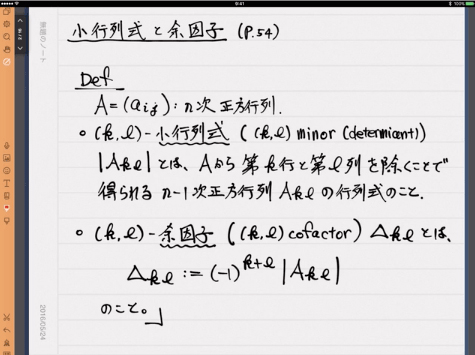 9:41
100%
2/16
無題のノート
小行列式と余因子 (P.54)
Def
A=(aij):n次正方行列.
○ (k,l)-小行列式 ((k,l) minor (determinant))
|Akl|とは、Aから第k行と第l列を除くことで
得られるn-1次正方行列Aklの行列式のこと.
○ (k,l)-余因子 ((k,l) cofactor) Δklとは、
Δkl := (-1)^{k+l} |Akl|
のこと。」
2016/05/24